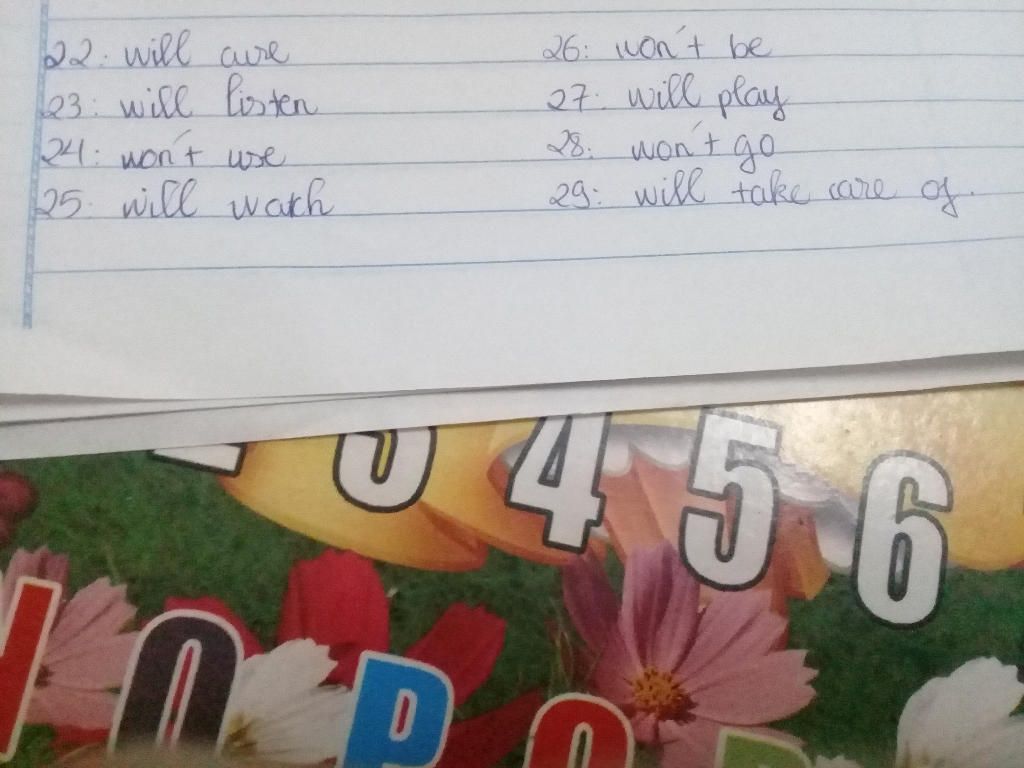 22: will cure
23: will listen
24: won't use
25. will watch
26: won't be
27. will play
28. won't go
29: will take care of.
3 4 5 6
O P